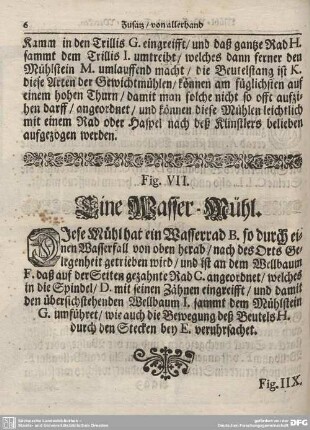 6 Zusatz / von allerhand
Kamm in den Trillis G. eingreifft / und daß gantze Rad H.
sammt dem Trillis I. umtreibt / welches dann ferner den
Mühlstein M. umlauffend macht / die Beutelstang ist K.
diese Arten der Gewichtmühlen / können am füglichsten auf
einem hohen Thurn / damit man solche nicht so offt aufzi-
hen darff / angeordnet / und können diese Mühlen leichtlich
mit einem Rad oder Haspel nach deß Künstlers belieben
aufgezogen werden.
Fig. VII.
Eine Wasser-Mühl.
DIese Mühl hat ein Wasserrad B. so durch ei-
nen Wasserfall von oben herab / nach des Orts Ge-
legenheit getrieben wird / und ist an dem Wellbaum
F. daß auf der Seiten gezahnte Rad C. angeordnet / welches
in die Spindel / D. mit seinen Zähnen eingreifft / und damit
den übersichstehenden Wellbaum I. sammt dem Mühlstein
G. umführet / wie auch die Bewegung deß Beutels H.
durch den Stecken bey E. veruhrsachet.
Fig. IIX.
Deutsche Forschungsgemeinschaft
DFG